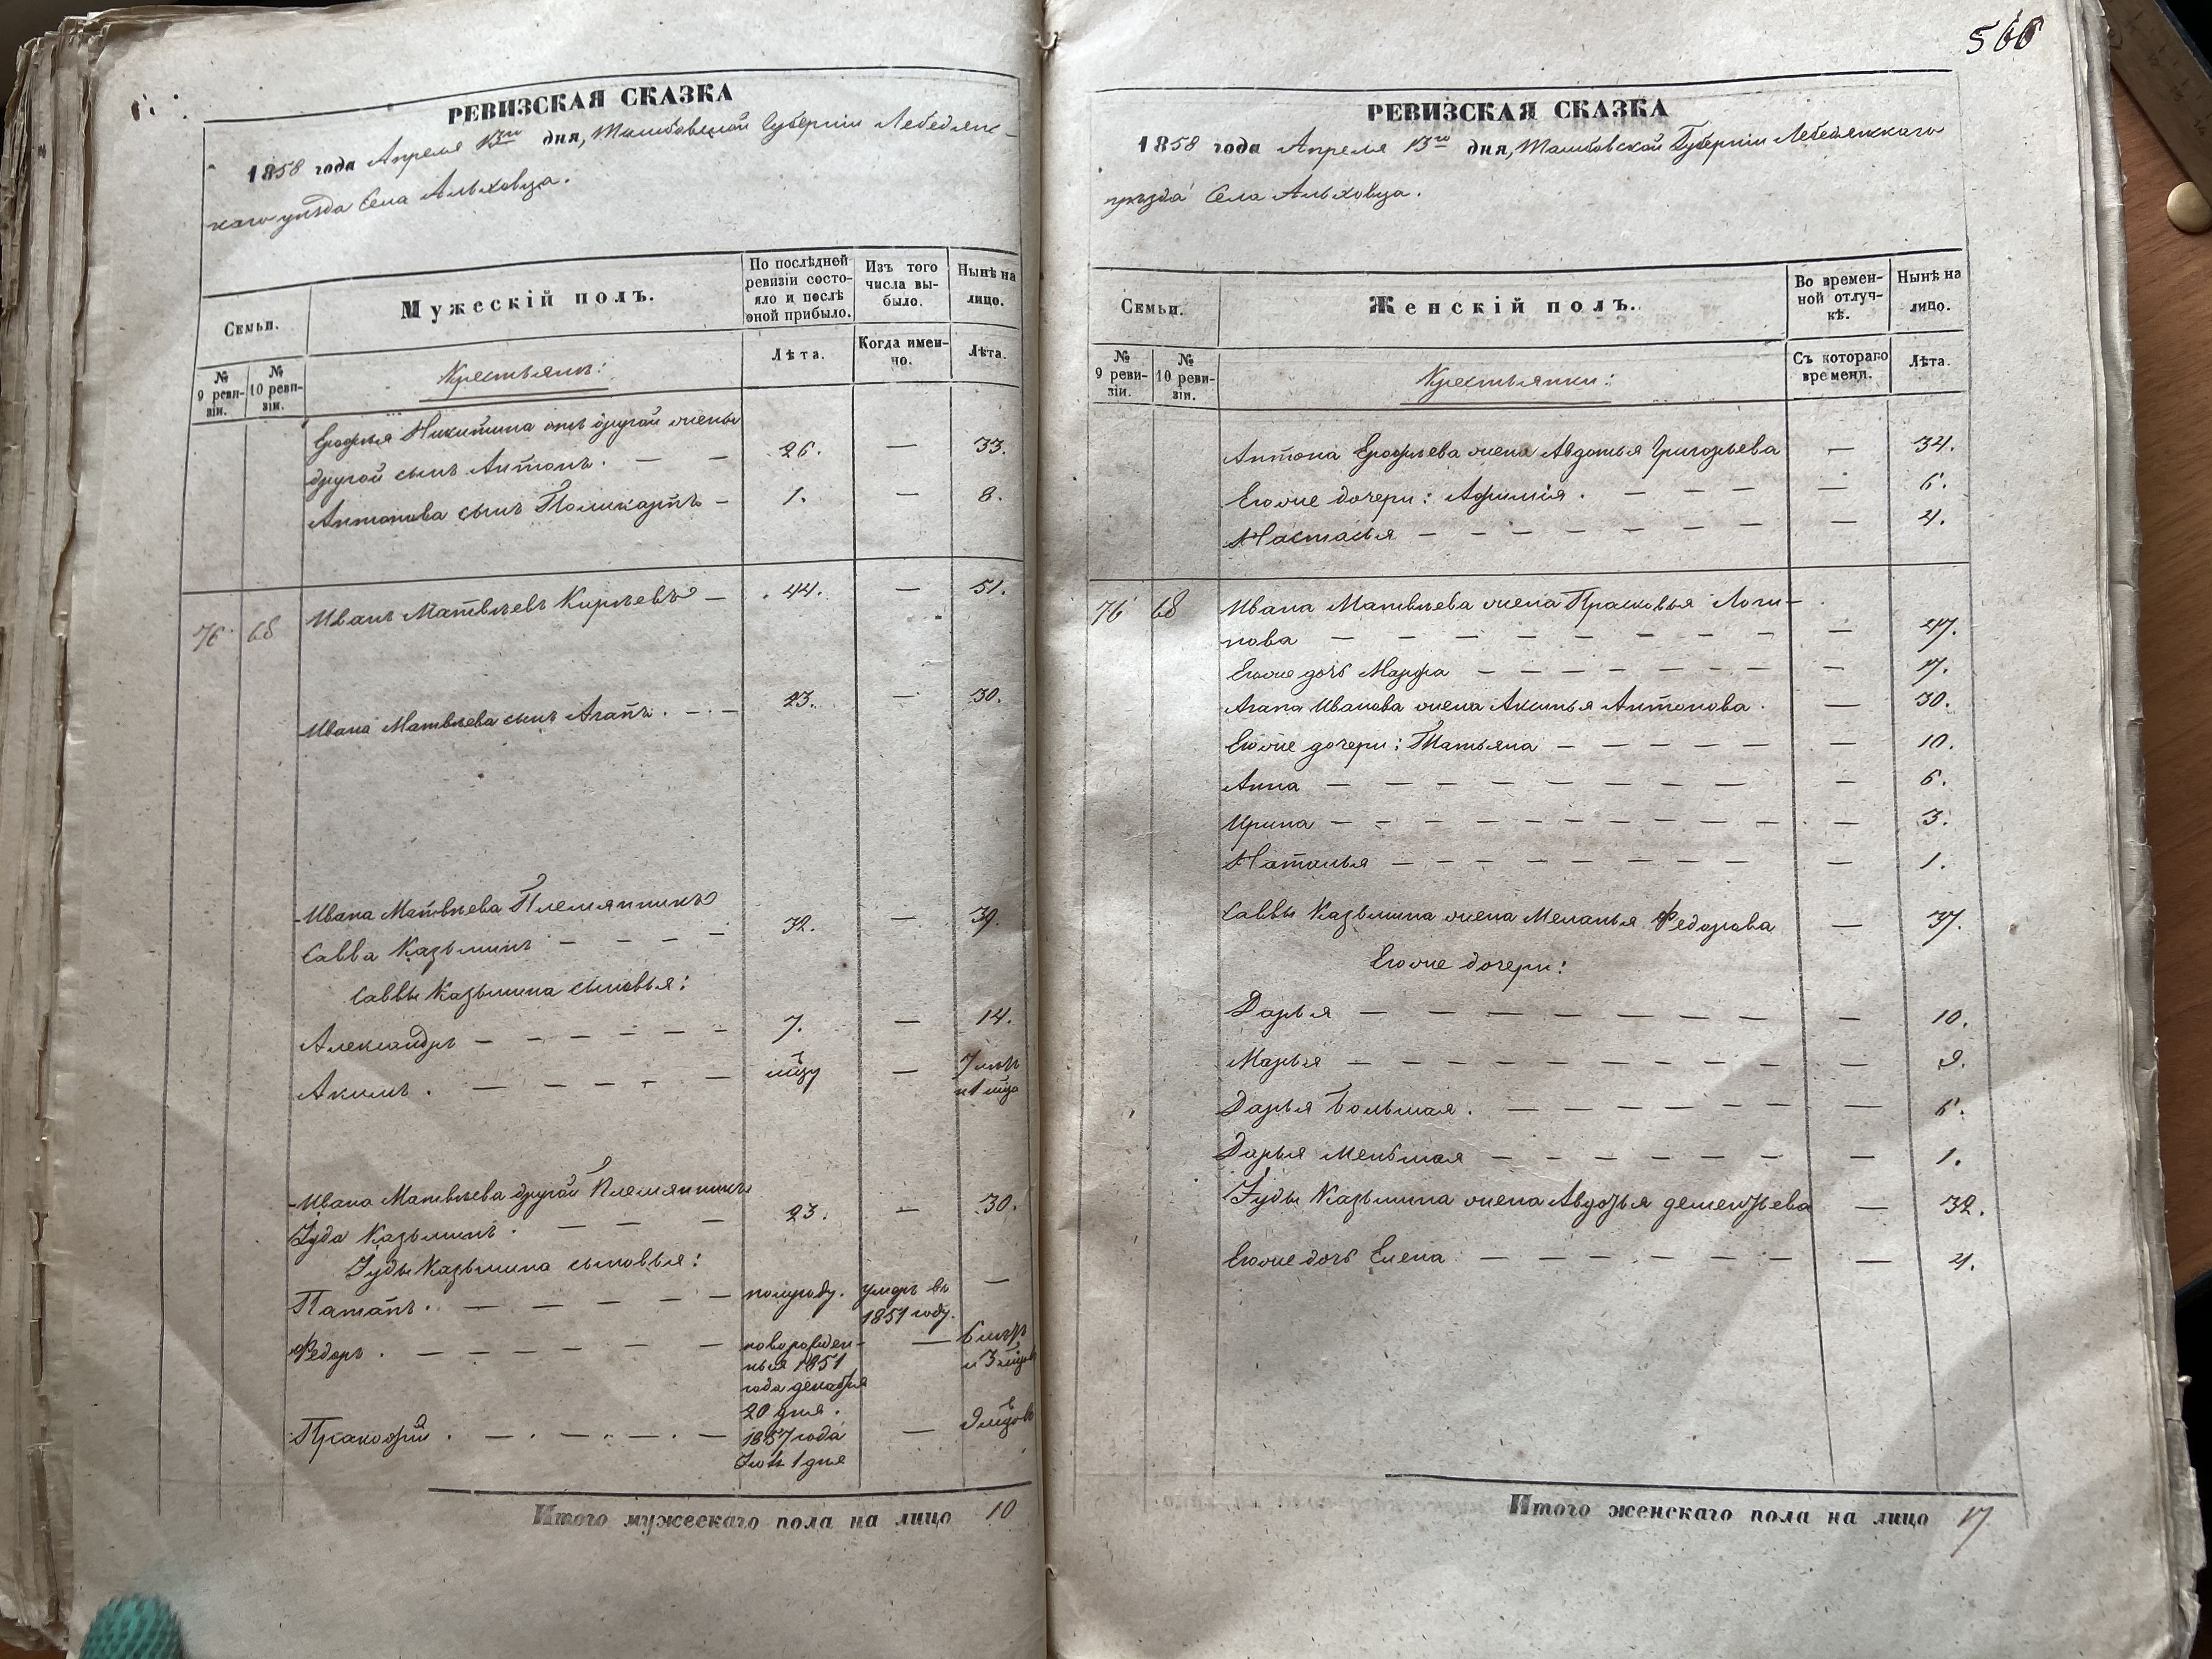 566
РЕВИЗСКАЯ СКАЗКА
1858 года Апреля 13го дня, Тамбовской Губернии Лебедянс-
каго уѣзда Села Альховца.
Семьи.
Мужескій полъ.
По послѣдней ревизіи состояло и послѣ оной прибыло.
Изъ того числа выбыло.
Нынѣ на лицо.
№ 9 ревизіи.
№ 10 ревизіи.
Крестьянъ:
Лѣта.
Когда именно.
Лѣта.
Ерофѣя Никитина отъ другой жены
другой сынъ Антонъ. — — 26. — 33.
Антонова сынъ Поликарпъ — 1. — 8.
76 68 Иванъ Матвѣевъ Кирѣевъ — 44. — 51.
Ивана Матвѣева сынъ Агапъ. — — 23. — 30.
Ивана Матвѣева Племянникъ
Савва Казьминъ — — — — 32. — 39.
Саввы Казьмина сыновья:
Александръ — — — — — — 7. — 14.
Акимъ. — — — — — мцу — 7 лѣтъ
и 1 мца
Ивана Матвѣева другой Племянникъ
Іуда Казьминъ. — — — 23. — 30.
Іуды Казьмина сыновья:
Патапъ. — — — — — полугоду. умеръ въ —
1851 году.
Федоръ. — — — — — — новорожден- — 6 лѣтъ
ныя 1851 и 3 мцов
года декабря
20 дня.
Пракофій. — — — — — 1857 года — 9 мцовъ
Іюля 1 дня
Итого мужескаго пола на лицо 10
РЕВИЗСКАЯ СКАЗКА
1858 года Апреля 13го дня, Тамбовской Губерніи Лебедянскаго
уѣзда Села Альховца.
Семьи.
Женскій полъ.
Во временной отлучкѣ.
Нынѣ на лицо.
№ 9 ревизіи.
№ 10 ревизіи.
Крестьянки:
Съ котораго времени.
Лѣта.
Антона Ерофѣева жена Авдотья Григорьева — 34.
Егоже дочери: Афимія. — — — — — 6.
Настасья — — — — — — — 4.
76 68 Ивана Матвѣева жена Прасковья Логи-
нова — — — — — — — — — 47.
Егоже дочь Марфа — — — — — — — 17.
Агапа Иванова жена Аксинья Антонова. — 30.
Егоже дочери: Татьяна — — — — — — 10.
Анна — — — — — — — — — 6.
Ирина — — — — — — — — — — 3.
Наталья — — — — — — — — — 1.
Саввы Казьмина жена Меланья Федорова — 37.
Егоже дочери:
Дарья — — — — — — — — — 10.
Марья — — — — — — — — — 9.
Дарья большая. — — — — — — — 6.
Дарья меньшая — — — — — — — 1.
Іуды Казьмина жена Авдотья дементьева — 32.
Егоже дочь Елена — — — — — — — 4.
Итого женскаго пола на лицо 17